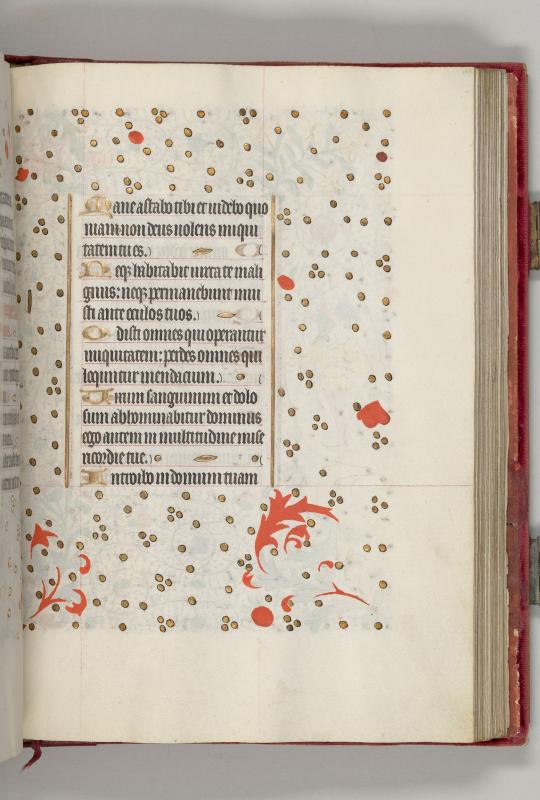 Mane astabo tibi et videbo quo
niam non deus volens iniqui
tatem tu es.
Neq; habitabit iuxta te mali
gnus: neq; permanebunt iniu
sti ante oculos tuos.
Odisti omnes qui operantur
iniquitatem: perdes omnes qui
loquuntur mendacium.
Virum sanguinum et dolo
sum abhominabitur dominus
ego autem in multitudine mise
ricordie tue.
Introibo in domum tuam